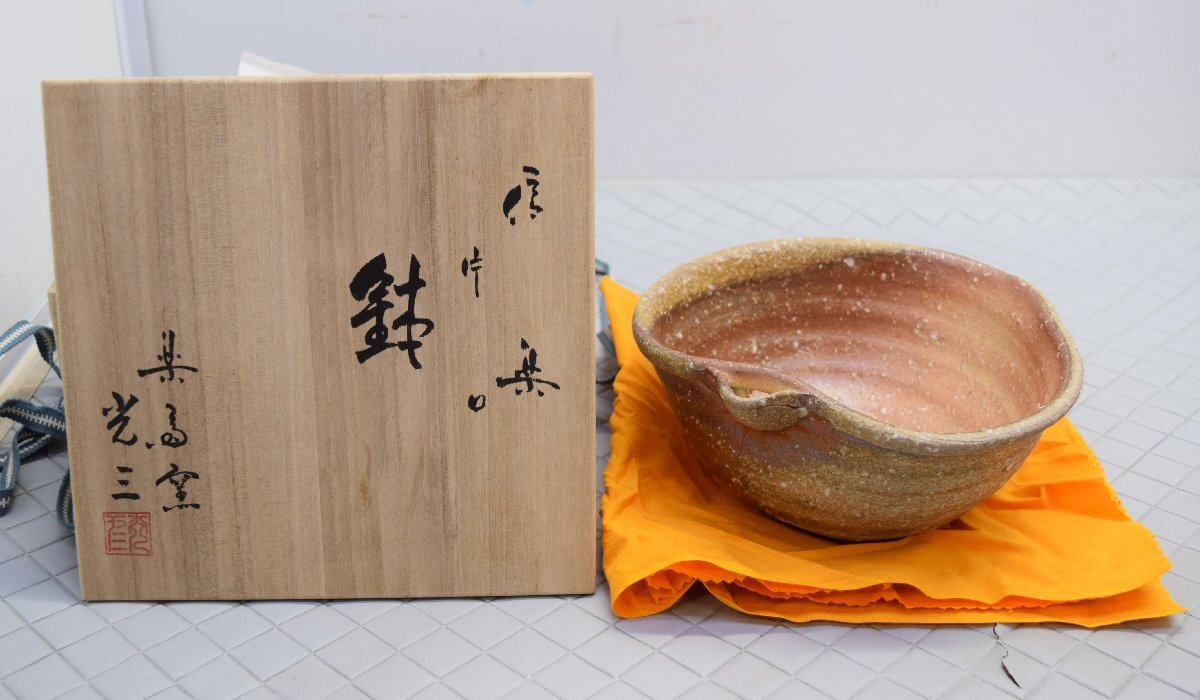 信楽
片口
鉢
楽斎窯
光三